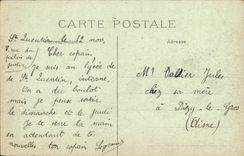 CARTE POSTALE
St Quentin le 12 nov.
Adresse
8 rue du palais de justice
Cher copain
Je suis au lycée de
St Quentin, interne.
On a du boulot
mais je peux sortir
le dimanche et le jeudi
Je te serre la main
en attendant de tes
nouvelles ton copain
Mr Vallier Jules
chez sa mère
à Dizy-le-Gros
(Aisne)